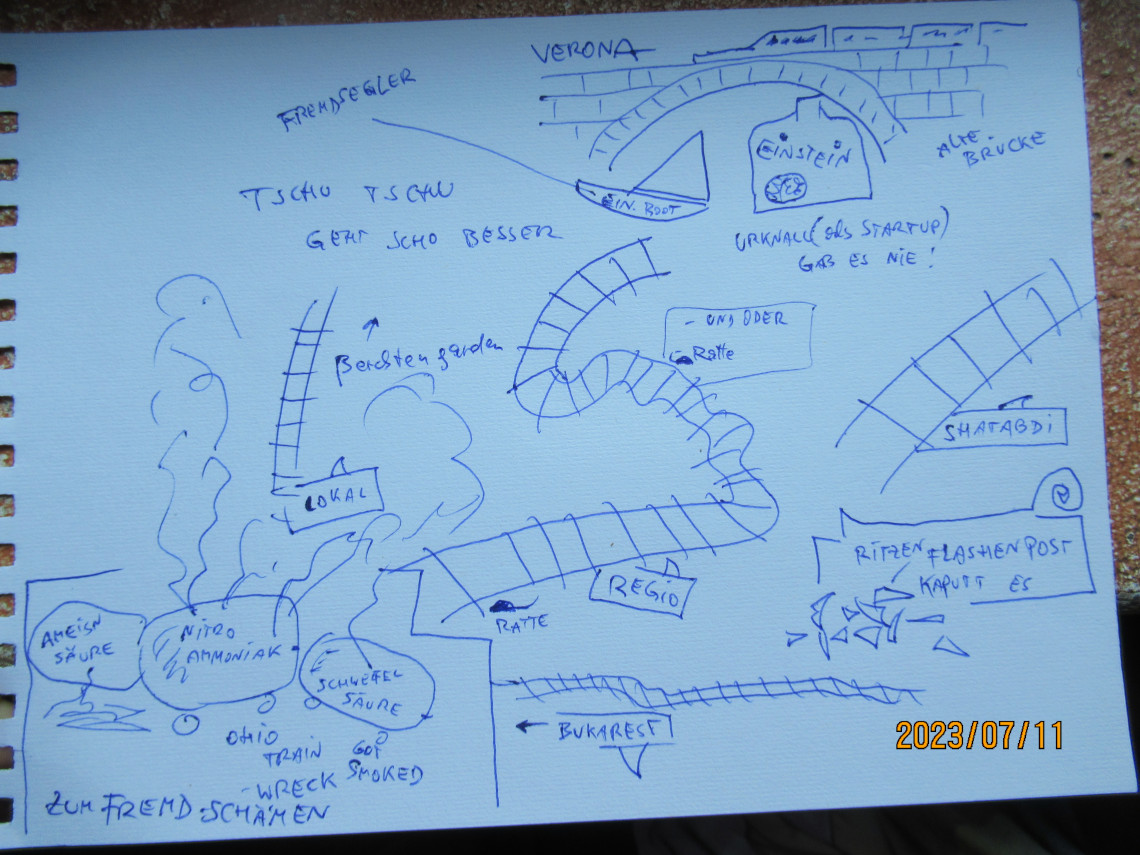 VERONA
FREMDSEGLER
EINSTEIN
ALTE
BRÜCKE
TSCHU TSCHU
EIN. BOOT
GEHT SCHO BESSER
URKNALL (als STARTUP)
GAB ES NIE!
Berchtengarden
- UND ODER
Ratte
SHATABDI
LOKAL
RITZEN FLASHENPOST
KAPUTT ES
REGIO
RATTE
AMEISN
SÄURE
NITRO
AMMONIAK
SCHWEFEL
SÄURE
← BUKAREST
OHIO
TRAIN GOT
-WRECK SMOKED
ZUM FREMD-SCHÄMEN
2023/07/11